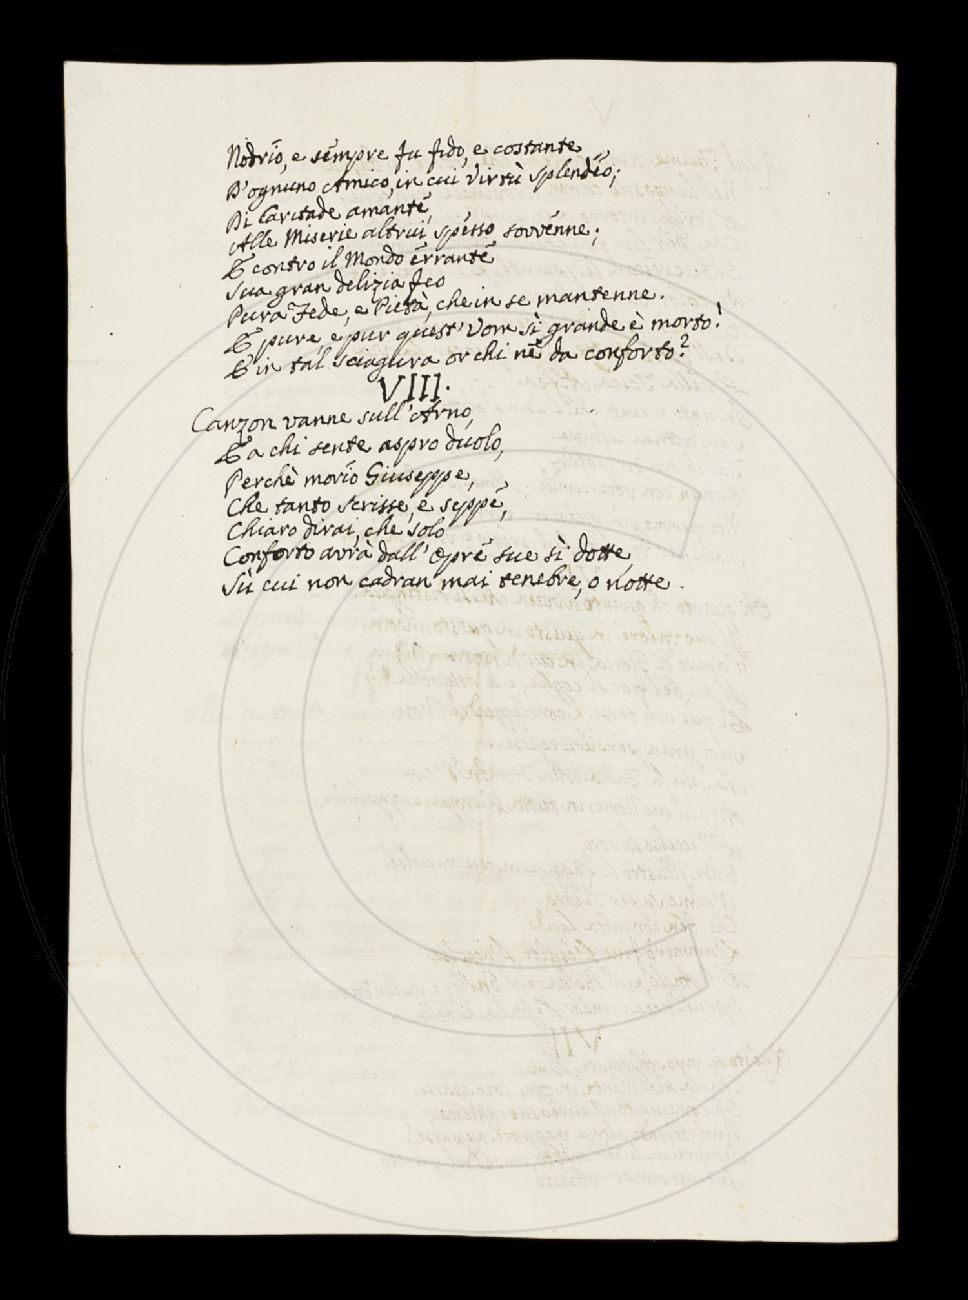 Nodrìo, e sempre fu fido, e costante
D'ognuno Amico, in cui Virtù splendèo;
Di Caritade amante,
Alle Miserie altrui spesso sovvenne;
E contro il Mondo errante
Sua gran delizia feo
Pura Fede, e Pietà, che in se mantenne.
E pure, e pur quest'Uom sì grande è morto!
E in tal sciagura or chi ne da conforto?
VIII.
Canzon vanne sull'Arno,
E a chi sente aspro duolo,
Perchè morìo Giuseppe,
Che tanto scrisse, e seppe,
Chiaro dirai, che solo
Conforto avrà dall'Opre sue sì dotte,
Sù cui non cadran mai tenebre, o notte.